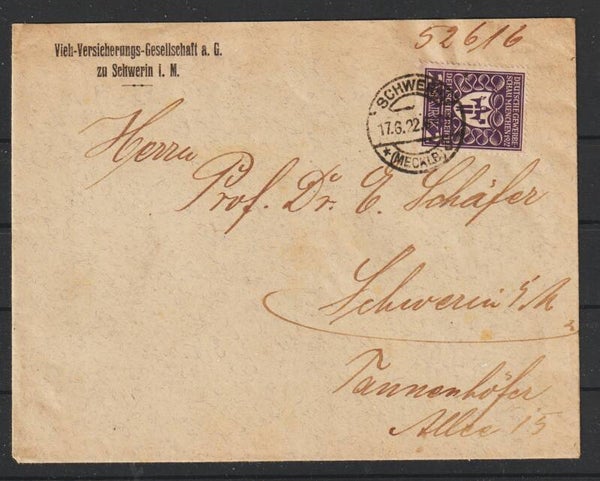 Vieh-Versicherungs-Gesellschaft a. G.
zu Schwerin i. M.
52616
SCHWERIN
17.6.22
*(MECKLB.)
DEUTSCHE GEWERBE
SCHAU MÜNCHEN 1922
Herrn
Prof. Dr. E. Schäfer
Schwerin i/M
Tannenhöfer
Allee 15